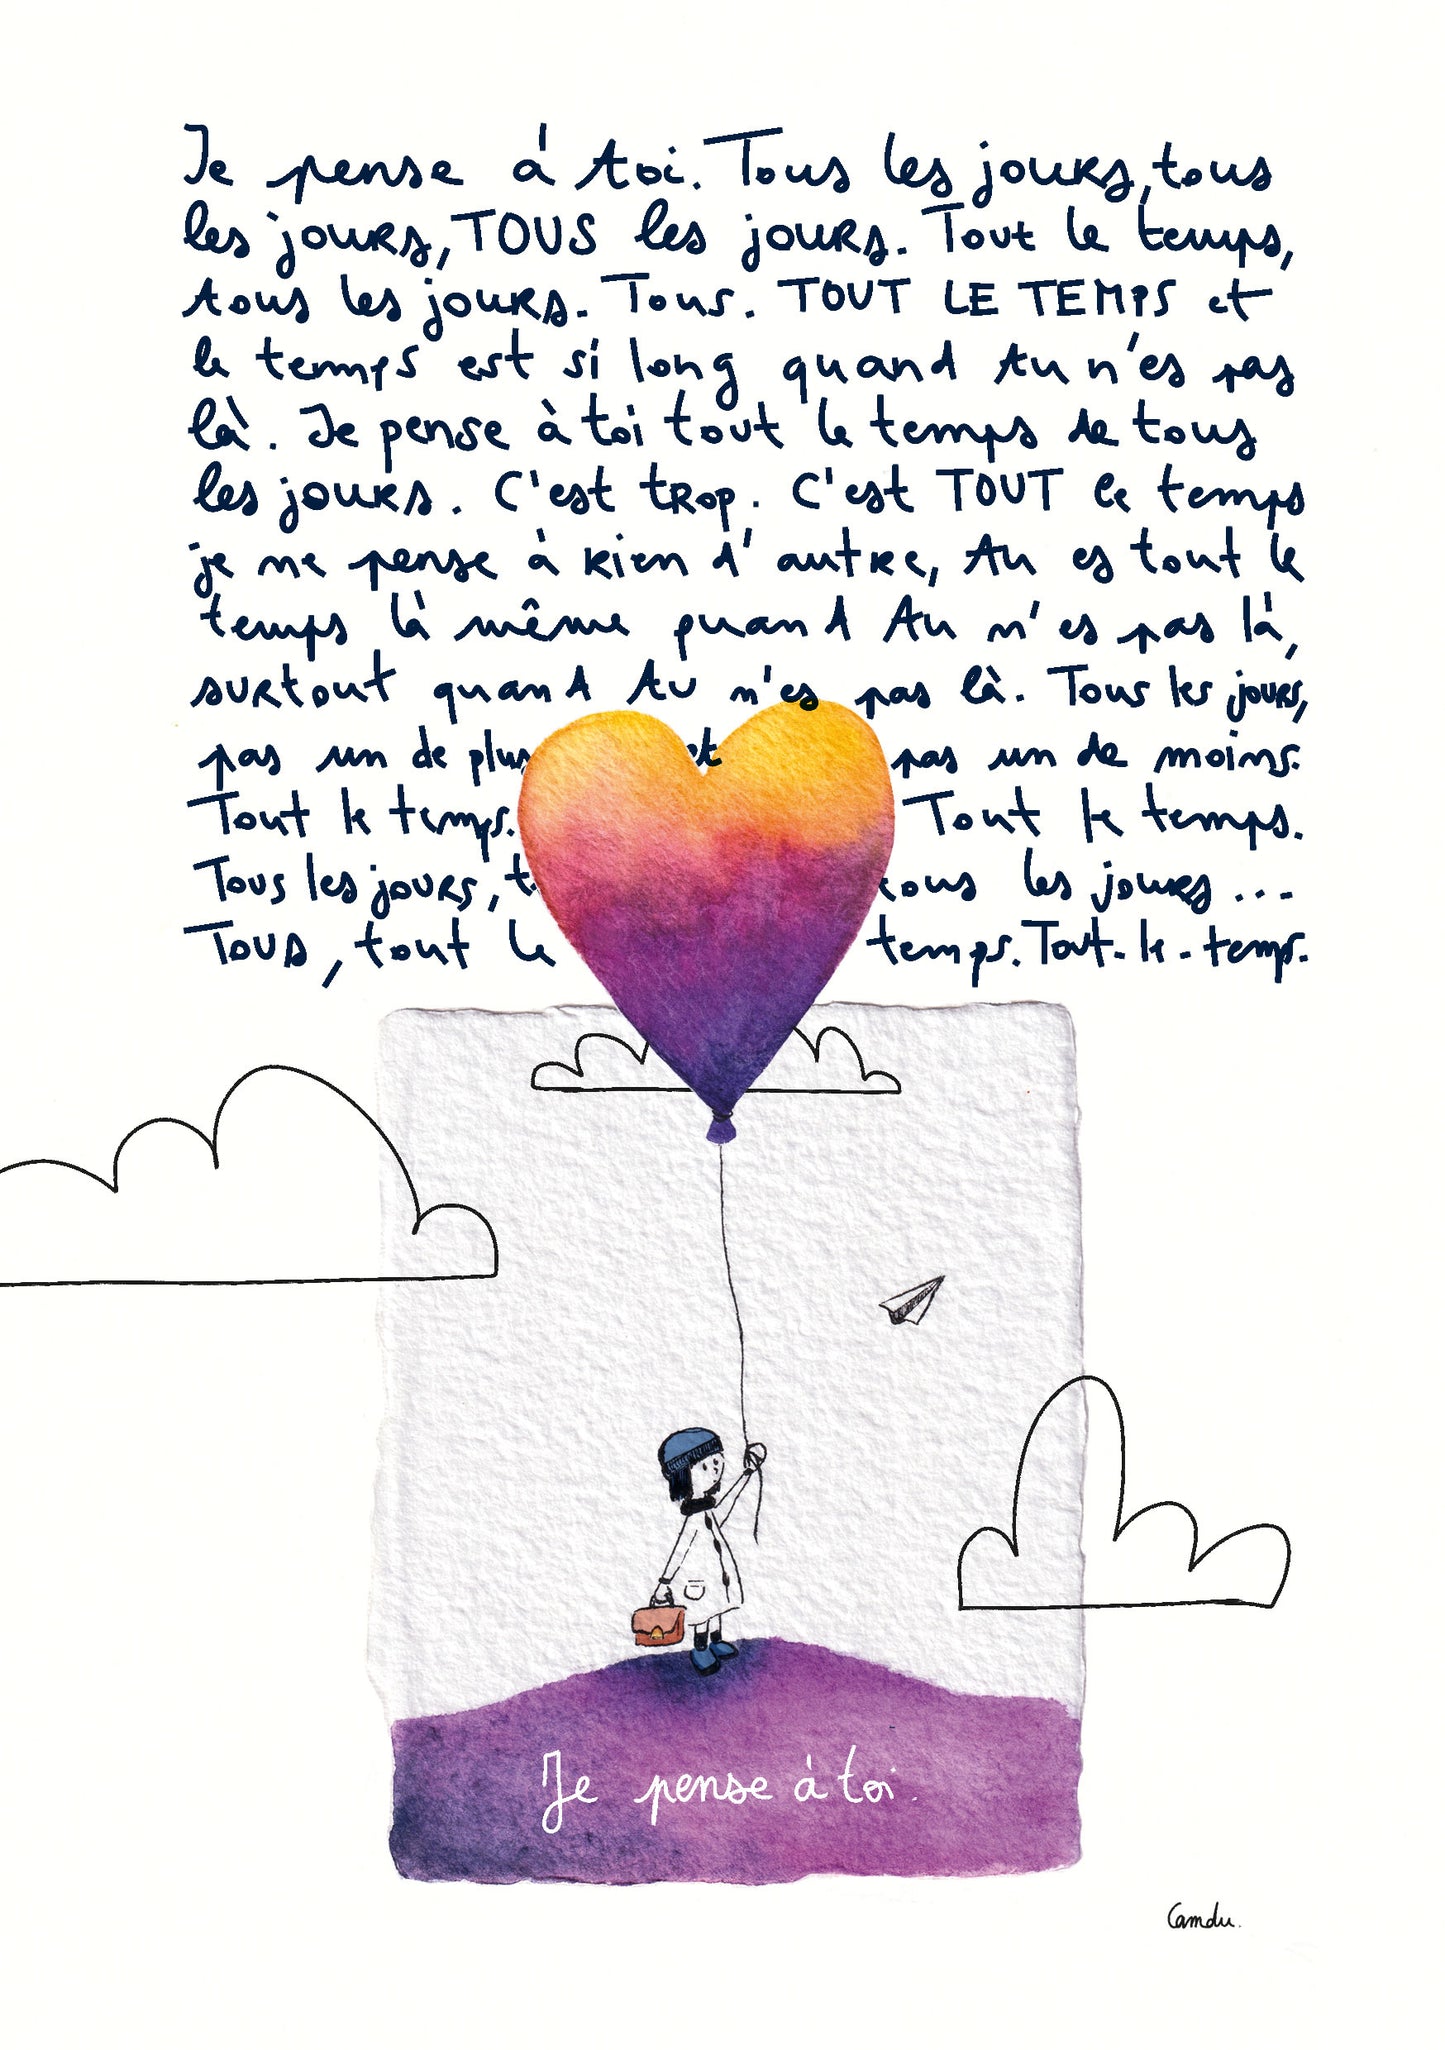 Je pense à toi. Tous les jours, tous
les jours, TOUS les jours. Tout le temps,
tous les jours. Tous. TOUT LE TEMPS et
le temps est si long quand tu n'es pas
là. Je pense à toi tout le temps de tous
les jours. C'est trop. C'est TOUT le temps
je ne pense à rien d'autre, tu es tout le
temps là même quand tu n'es pas là,
surtout quand tu n'es pas là. Tous les jours,
pas un de plus et pas un de moins.
Tout le temps. Tout le temps.
Tous les jours, tous les jours...
Tous, tout le temps. Tout-le-temps.
Je pense à toi.
Camdu.